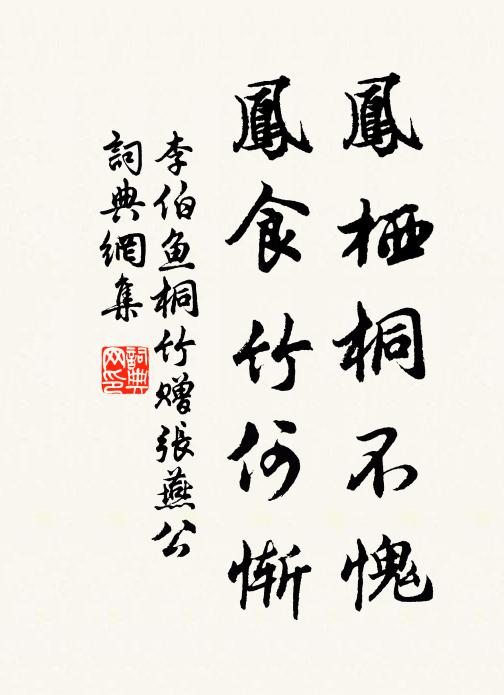 鳳栖桐不愧
鳳食竹何慚
李伯鱼桐竹赠張燕公
詞典網集
詞典
网印